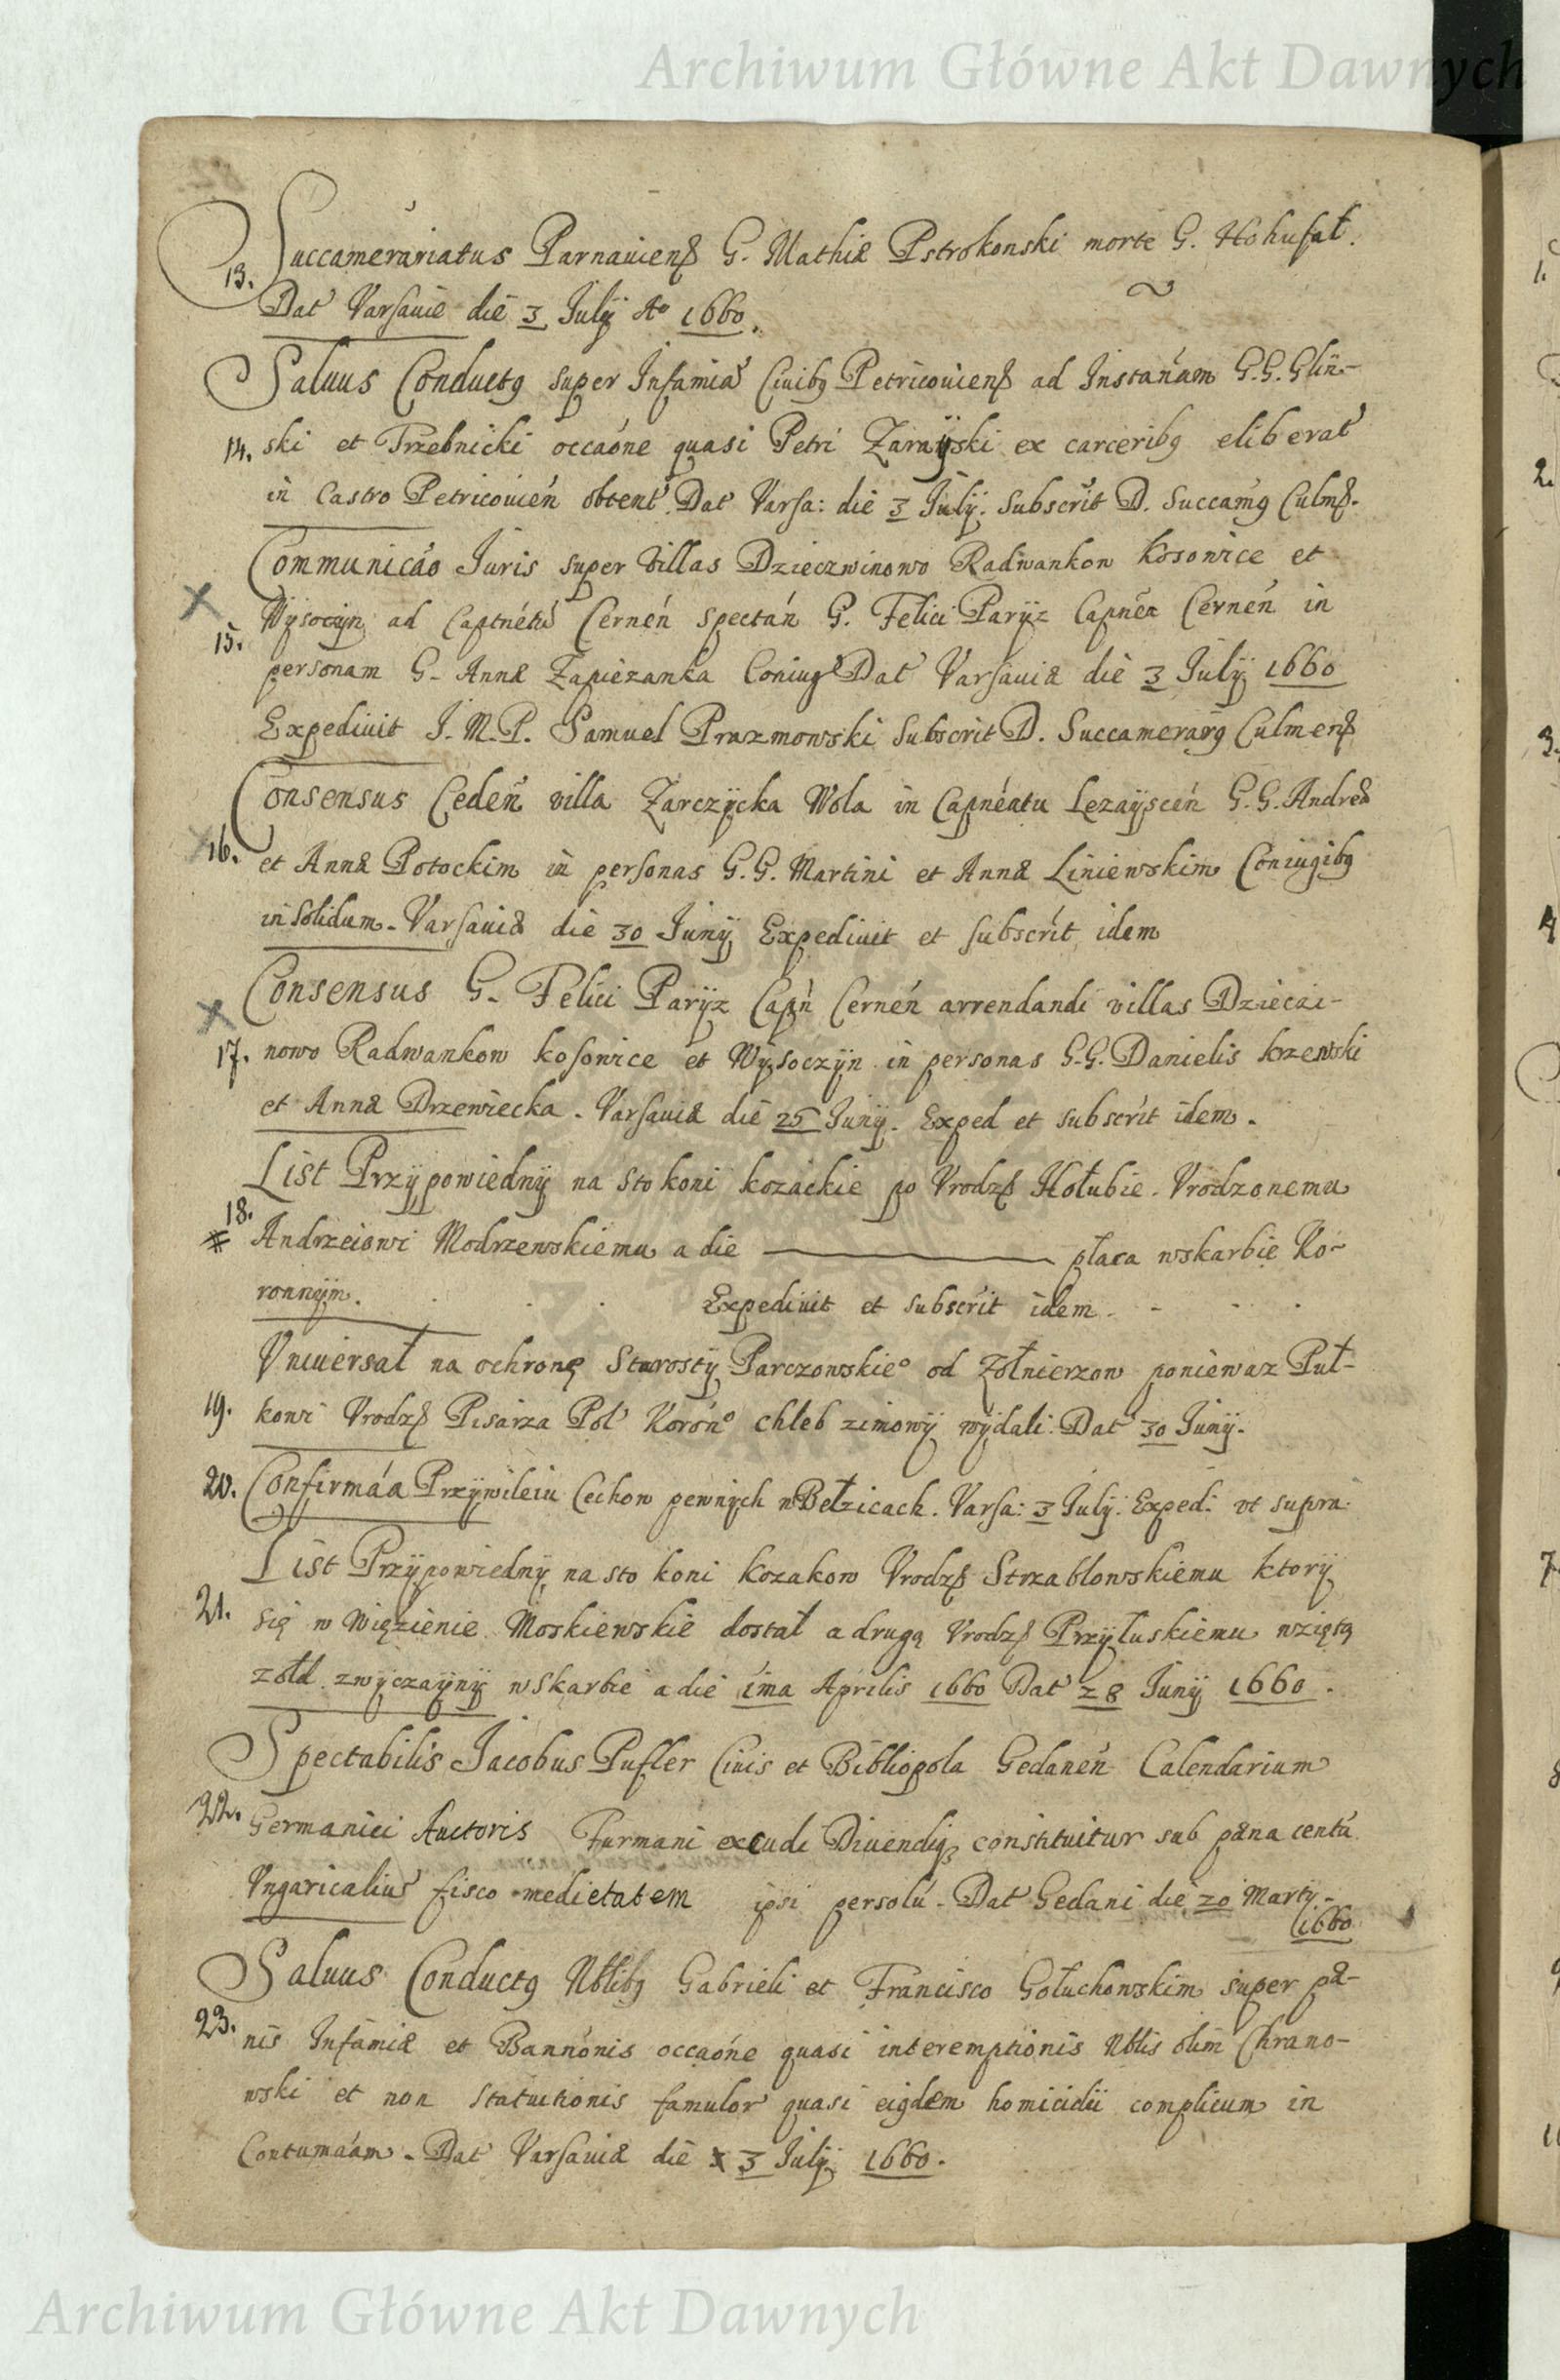 Archiwum Główne Akt Dawnych
Succamerariatus Parnauienß G. Mathiæ Pstrokonski morte G. Hohufał.
13.
Dat Varsauie die 3 July Aº 1660.
Saluus Conductꝯ super Infamia Ciuibꝯ Petricouienß ad Instan̄am G. G. Glin-
14. ski et Trzebnicki occaōne quasi Petri Zarayski ex carceribꝯ eliberat
in Castro Petricouień obtent. Dat Varsa: die 3 July. Subscrit D. Succamꝯ Culmß.
Communicāo Juris super villas Dzieczwinowo Radwankow Kosowice et
Wysoczyn ad Captnētū Cerneń spectań G. Felici Paryz Capnēo Cerneń in
15.
personam G. Annæ Zapiezanka Coniug Dat Varsauiæ die 3 July 1660
Expediuit J. M. P. Samuel Prazmowski Subscrit D. Succamerarꝯ Culmenß
Consensus Cedeń villa Zarczycka Wola in Capnéatu Lezaysceń G. G. Andreæ
16. et Annæ Potockim in personas G. G. Martini et Annæ Liniewskim Coniugibꝯ
in solidum. Varsauiæ die 30 Juny Expediuit et subscrit idem
Consensus G. Felici Paryz Capń Cerneń arrendandi villas Dzieczi-
17. nowo Radwankow kosowice et Wysoczyn in personas G. G. Danielis krzewski
et Annæ Drzewiecka. Varsauiæ die 25 Juny. Exped et subscrit idem.
List Przypowiedny na sto koni kozackie po Vrodzß Hołubie. Vrodzonemu
18.
Andrzeiowi Modrzewskiemu a die ——— płaca wskarbie Ko-
ronnym. Expediuit et subscrit idem.
Vniuersał na ochronę Starosty Parczowskieº od Zołnierzow poniewaz Puł-
19. kowi Vrodzß Pisarza Pol Koronº chleb zimowy wydali. Dat 30 Juny.
20. Confirmāa Przywileiu Cechow pewnych w Bełzicach. Varsa: 3 July. Exped. vt supra.
List Przypowiedny na sto koni Kozakow Vrodzß Strzablowskiemu ktory
21. się w Więzienie Moskiewskie dostał a drugą Vrodzß Przyłuskiemu wziętą
zołd zwyczayny wskarbie a die 1ma Aprilis 1660 Dat 28 Juny 1660.
Spectabilis Jacobus Pufler Ciuis et Bibliopola Gedaneń Calendarium
22. Germanici Auctoris Furmani excudi Diuendiqꝫ constituitur sub pæna centū
Vngaricaliū fisco medietatem ipsi persolū. Dat Gedani die 20 Marty.
1660
Saluus Conductꝯ Nblibꝯ Gabrieli et Francisco Gołuchowskim super pæ-
23. nis Infamiæ et Bannōnis occaōne quasi interemptionis Nblis olim Chrano-
wski et non statuitionis famulor quasi eiꝯdem homicidii complicum in
Contumaām. Dat Varsauiæ die 3 July 1660.
Archiwum Główne Akt Dawnych